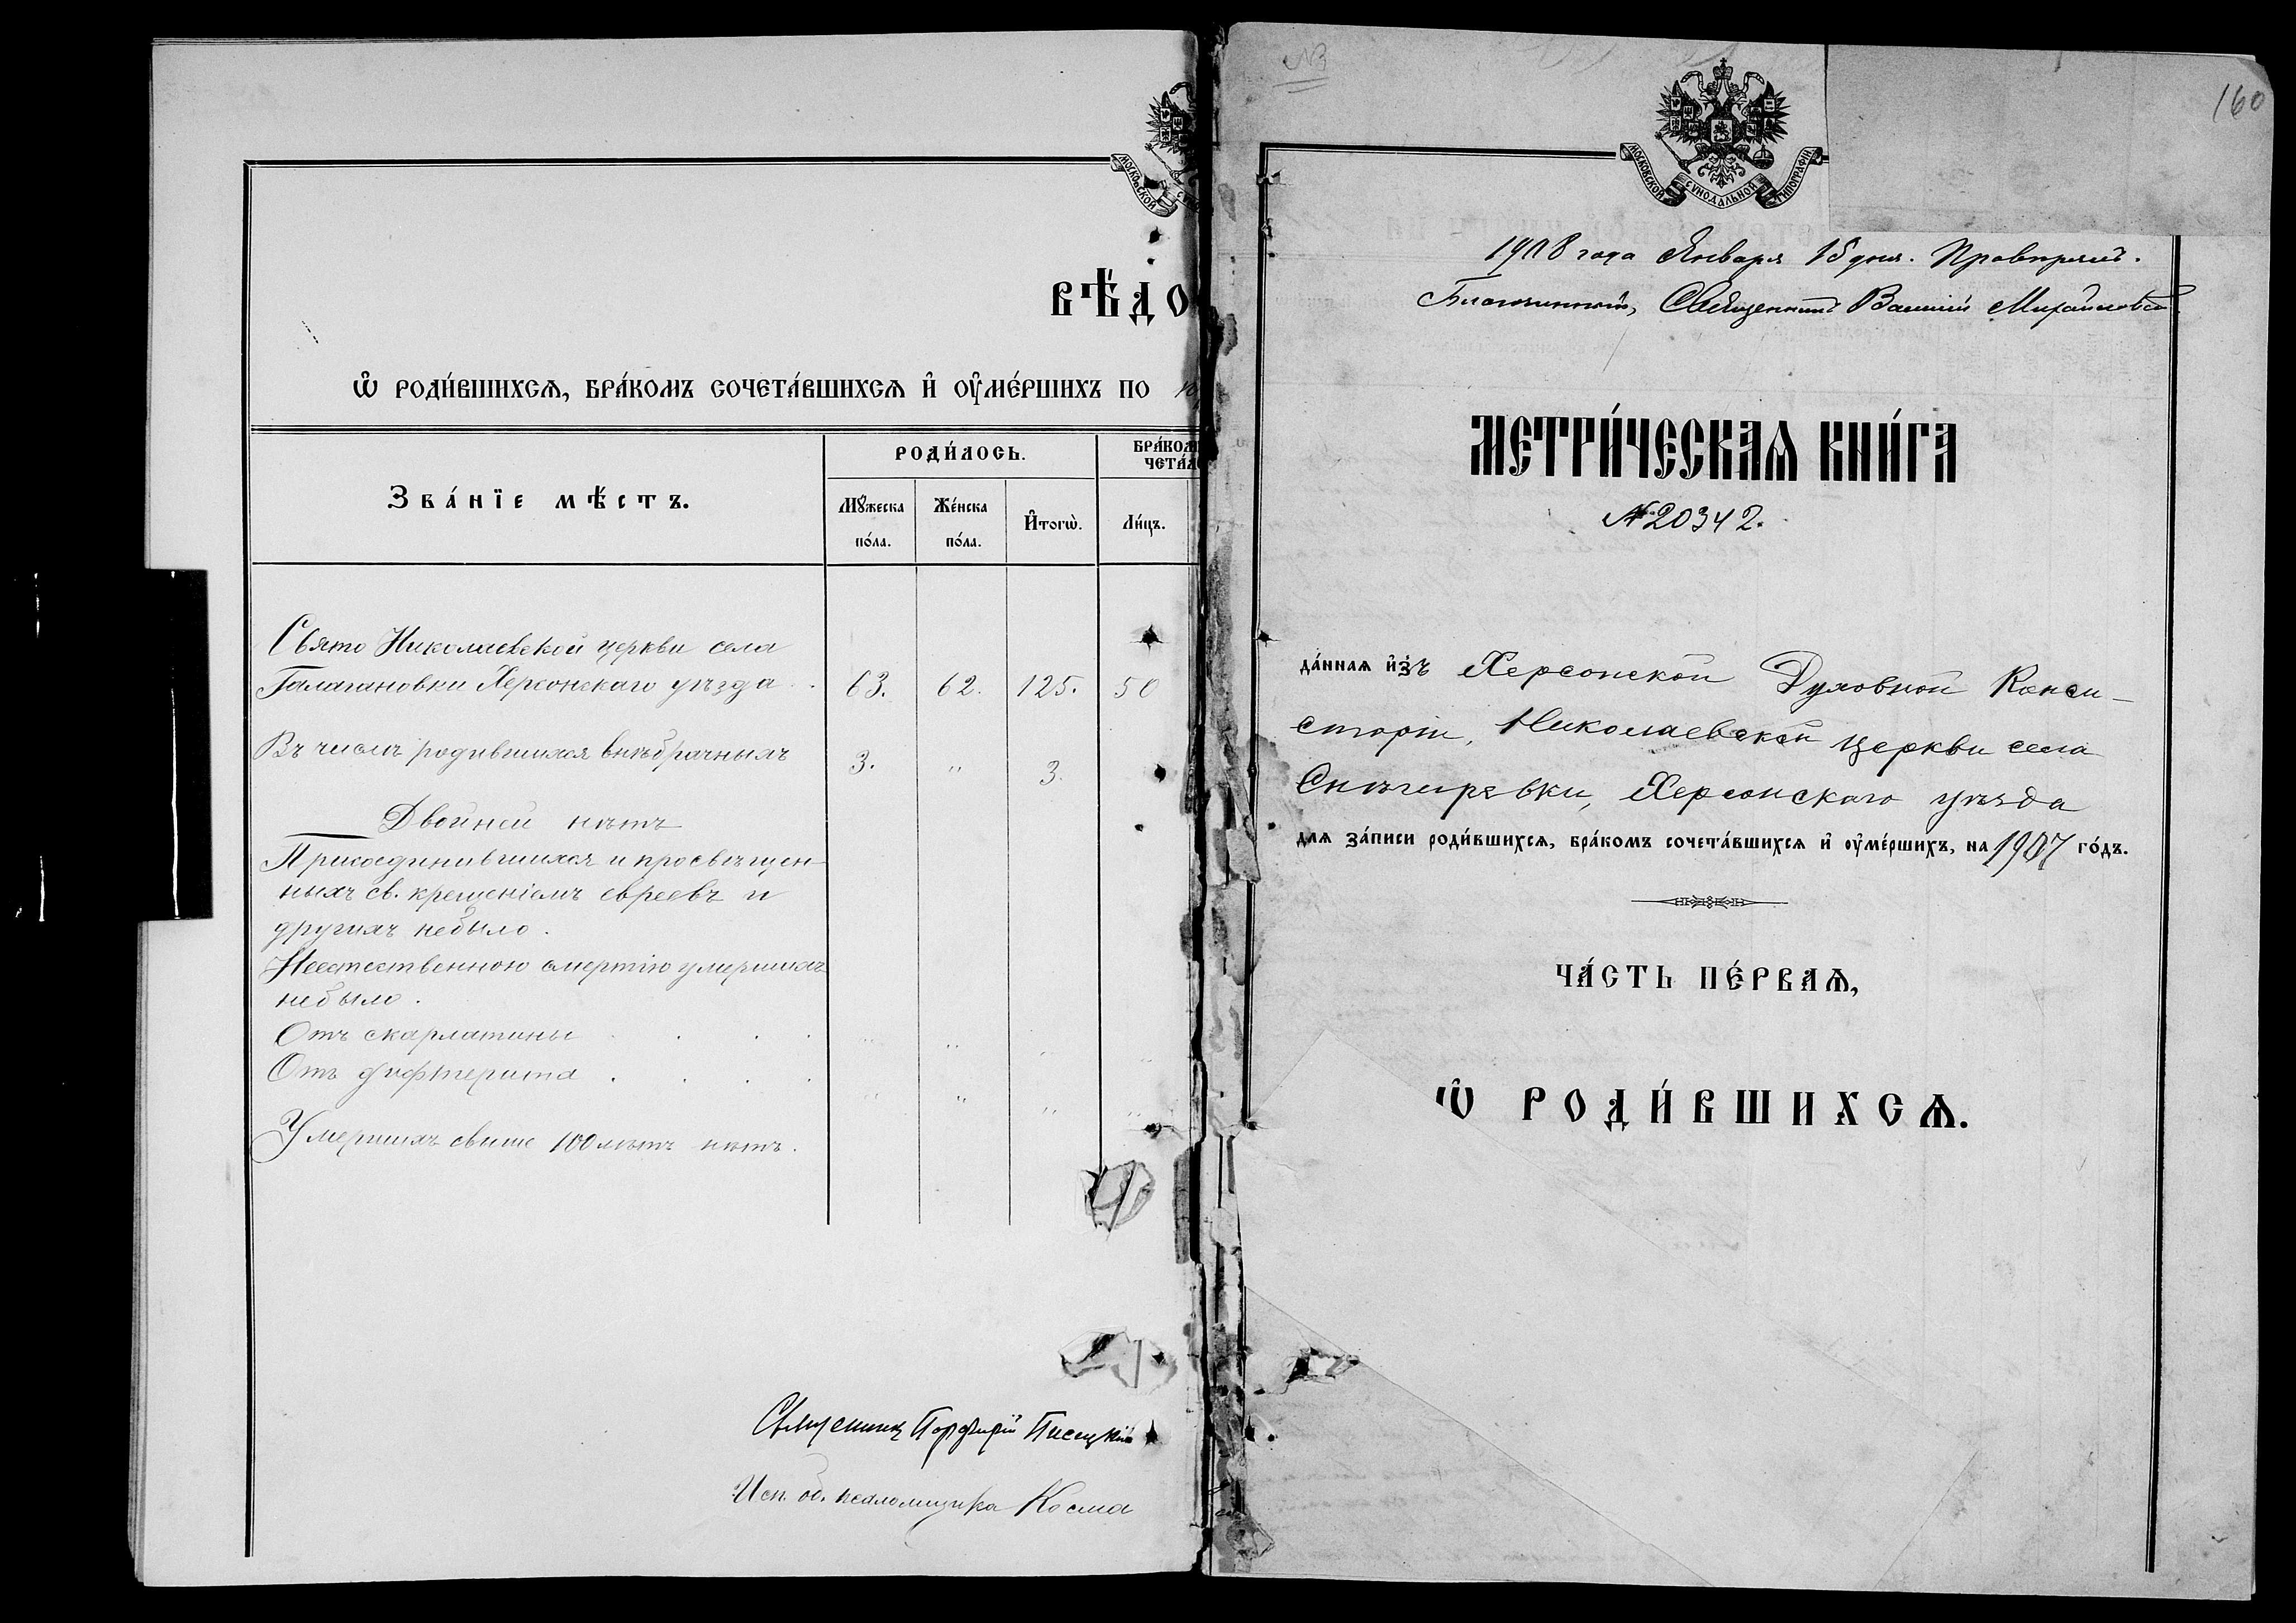 МОСКОВСКОЙ
ВѢДО
Ѡ҆ РОДИ́ВШИХСѦ, БРА́КОМЪ СОЧЕТА́ВШИХСѦ И҆ ОУ҆МЕ́РШИХЪ ПО
Зва́нїе мѣ́стъ.
РОДИ́ЛОСЬ.
БРА́КОМ
ЧЕТА́Л
Мꙋ́жеска
по́ла.
Же́нска
по́ла.
И҆тогѡ̀.
Ли́цъ.
Свято Николаевской церкви села
Галагановки Херсонскаго уѣзда . 63. 62. 125. 50
Въ числѣ родившихся внѣбрачныхъ 3. " 3.
Двойней нѣтъ
Присоединившихся и просвѣщен-
ныхъ св. крещеніемъ евреевъ и
другихъ небыло.
Неестественною смертію умершихъ
небыло.
Отъ скарлатины . . . . " " " "
Отъ дифтерита . . . . " " " "
Умершихъ свыше 100 лѣтъ нѣтъ.
Священникъ Порфирій Писецкій
Исп. об. псаломщика Косма
№3
160
МОСКОВСКОЙ СѴНОДАЛЬНОЙ ТИПОГРАФІИ
1908 года Января 15 дня. Провѣрялъ.
Благочинный, Священникъ Василій Михайловс
МЕТРИ́ЧЕСКАѦ КНИ́ГА
№ 20342.
да́нная и҆зъ Херсонской Духовной Конси-
сторіи, Николаевской церкви села
Снѣгиревки, Херсонскаго уѣзда
для за́писи роди́вшихся, бра́комъ сочета́вшихся и҆ оу҆ме́ршихъ, на 1907 го́дъ.
ЧА́СТЬ ПЕ́РВАѦ,
Ѡ҆ РОДИ́ВШИХСѦ.